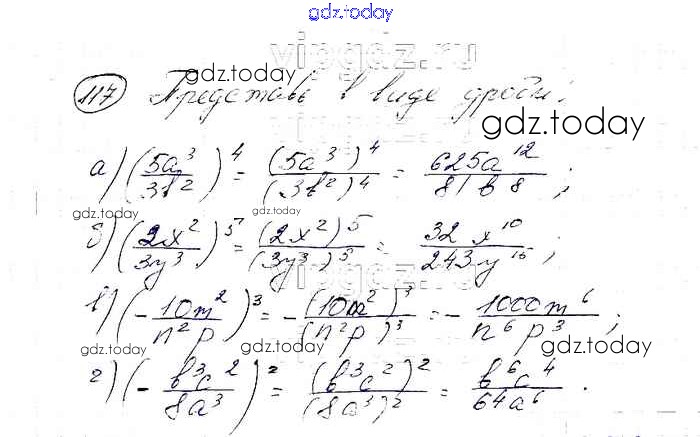 gdz.today
vipgdz.ru
117) Представь в виде дроби:
gdz.today
gdz.today
а) (5a³/3b²)⁴ = (5a³)⁴/(3b²)⁴ = 625a¹²/81b⁸;
gdz.today
gdz.today
б) (2x²/3y³)⁵ = (2x²)⁵/(3y³)⁵ = 32x¹⁰/243y¹⁵;
gdz.today
vipgdz.ru
в) (-10m²/n²p)³ = -(10m²)³/(n²p)³ = -1000m⁶/n⁶p³;
gdz.today
gdz.today
г) (-b³c²/8a³)² = (b³c²)²/(8a³)² = b⁶c⁴/64a⁶.
gdz.today